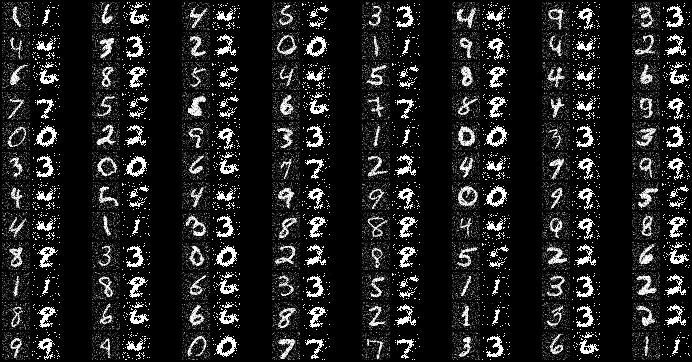 1 1 6 6 4 4 5 5 3 3 4 4 9 9 3 3
4 4 3 3 2 2 0 0 1 1 9 9 4 4 2 2
6 6 8 8 5 5 4 4 5 5 8 8 4 4 6 6
7 7 5 5 5 5 6 6 7 7 8 8 4 4 9 9
0 0 2 2 9 9 3 3 1 1 0 0 3 3 3 3
3 3 0 0 6 6 7 7 2 2 4 4 9 9 9 9
4 4 5 5 4 4 9 9 9 9 0 0 9 9 5 5
4 4 1 1 3 3 8 8 8 8 4 4 9 9 8 8
8 8 3 3 0 0 2 2 8 8 5 5 2 2 6 6
1 1 8 8 6 6 3 3 5 5 1 1 3 3 2 2
8 8 6 6 6 6 8 8 2 2 1 1 3 3 2 2
9 9 4 4 0 0 7 7 7 7 3 3 6 6 1 1